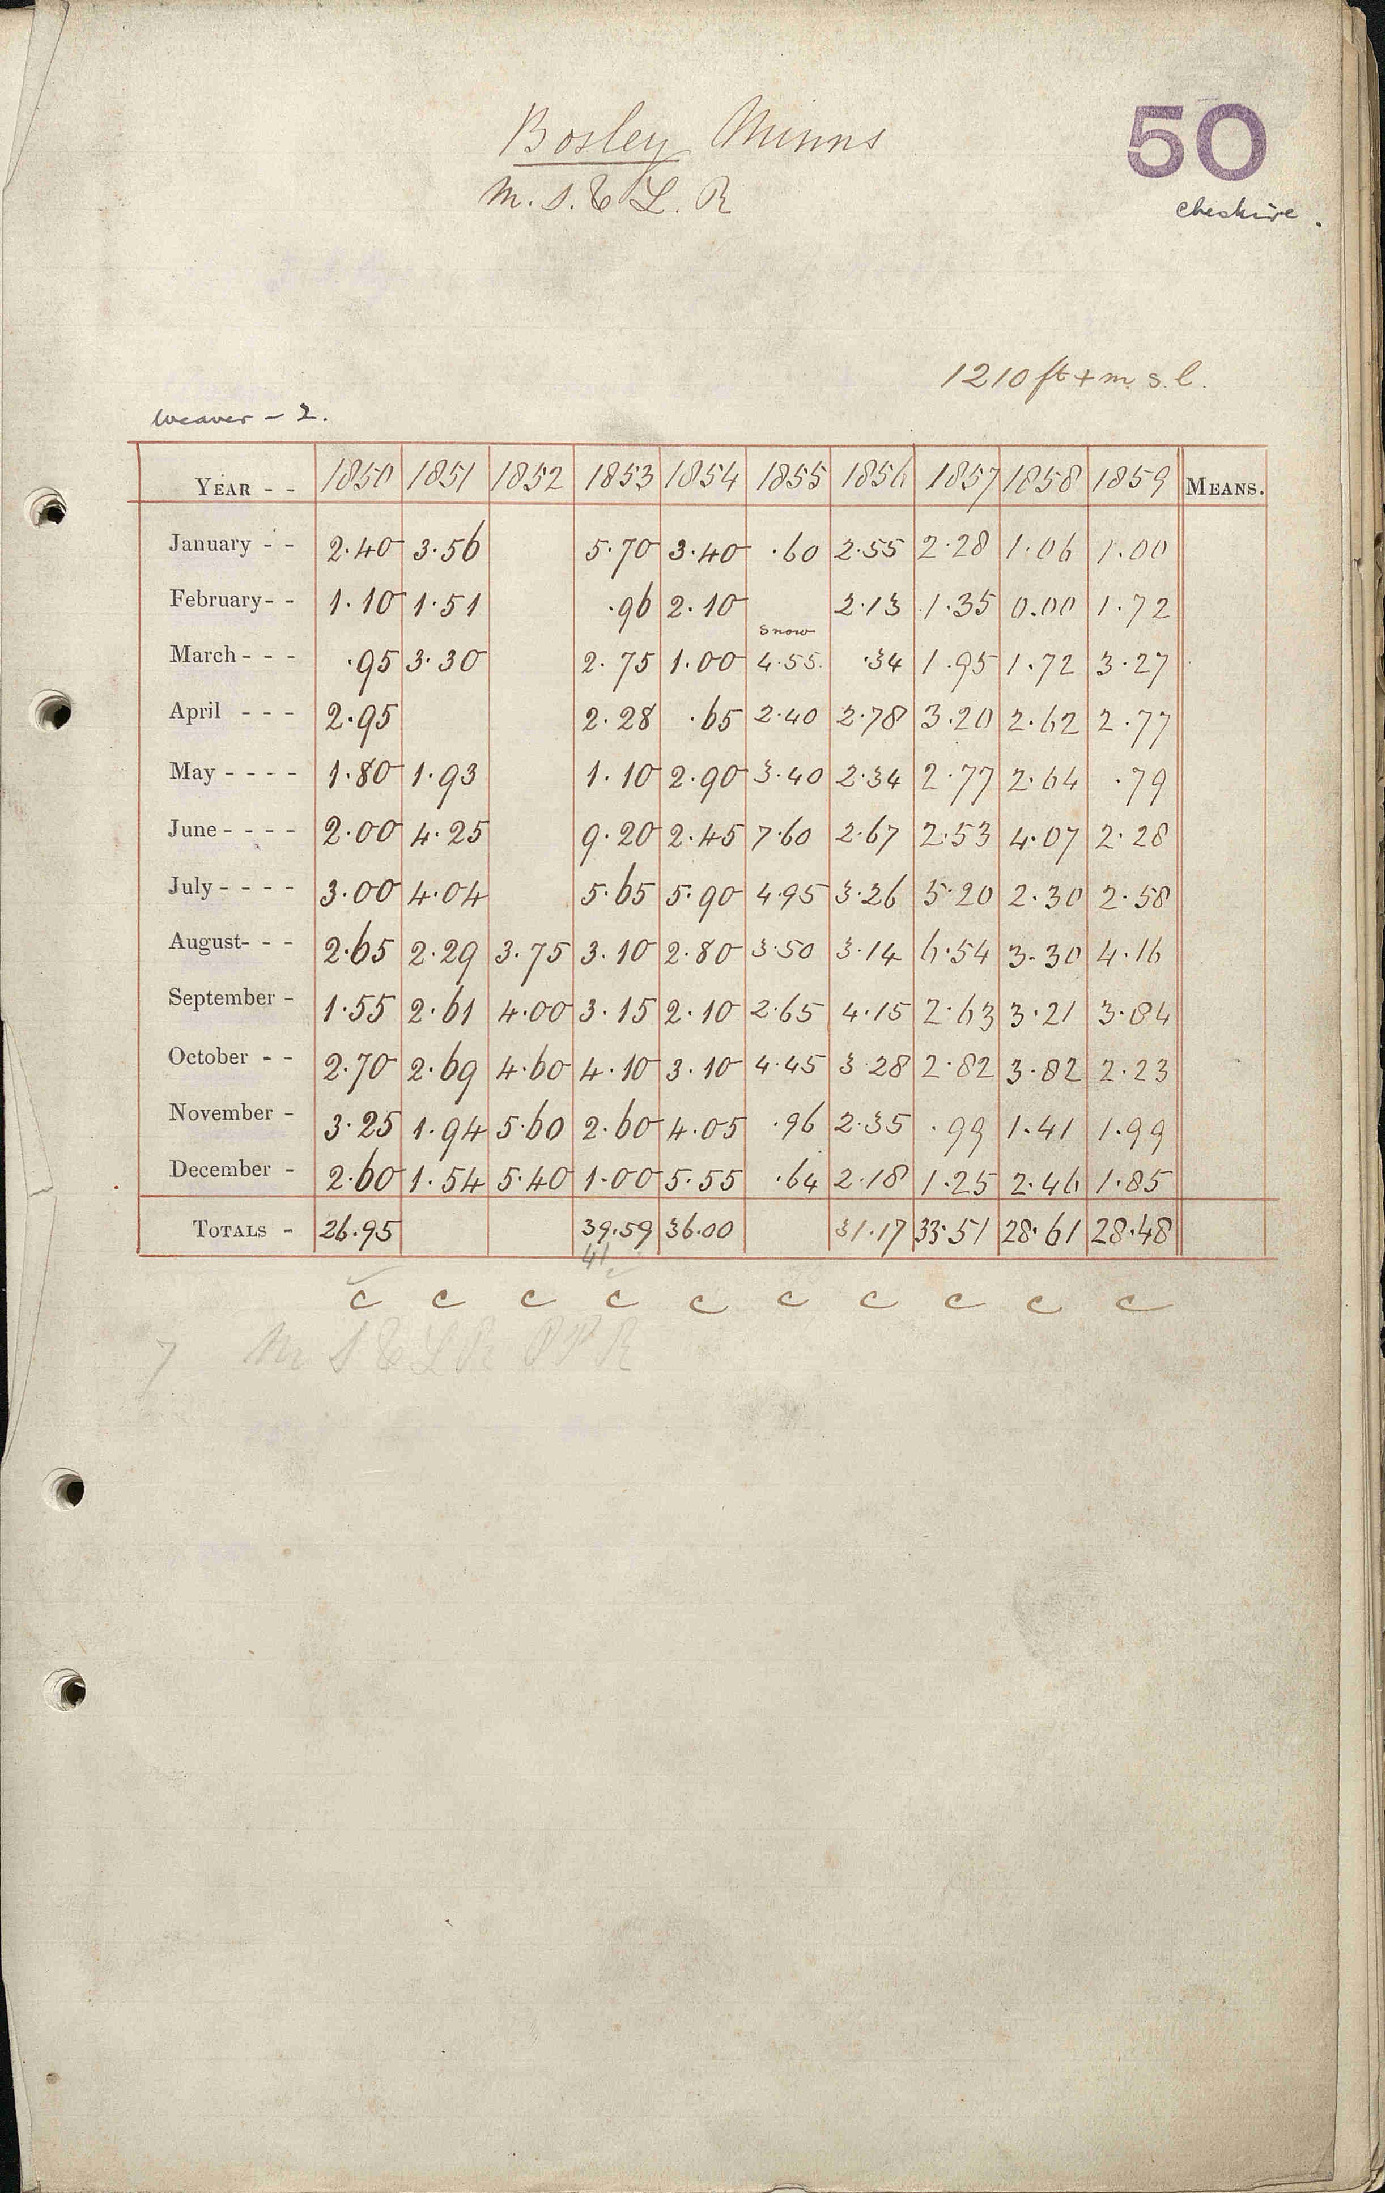 Bosley Minns
50
M. S. & L. R
Cheshire.
1210 ft + m. s. l.
Weaver - 2.
YEAR - - 1850 1851 1852 1853 1854 1855 1856 1857 1858 1859 MEANS.
January - - 2.40 3.56 5.70 3.40 .60 2.55 2.28 1.06 1.00
February - - 1.10 1.51 .96 2.10 2.13 1.35 0.00 1.72
snow
March - - - .95 3.30 2.75 1.00 4.55 .34 1.95 1.72 3.27
April - - - 2.95 2.28 .65 2.40 2.78 3.20 2.62 2.77
May - - - - 1.80 1.93 1.10 2.90 3.40 2.34 2.77 2.64 .79
June - - - - 2.00 4.25 9.20 2.45 7.60 2.67 2.53 4.07 2.28
July - - - - 3.00 4.04 5.65 5.90 4.95 3.26 5.20 2.30 2.58
August - - - 2.65 2.29 3.75 3.10 2.80 3.50 3.14 6.54 3.30 4.16
September - 1.55 2.61 4.00 3.15 2.10 2.65 4.15 2.63 3.21 3.84
October - - 2.70 2.69 4.60 4.10 3.10 4.45 3.28 2.82 3.82 2.23
November - 3.25 1.94 5.60 2.60 4.05 .96 2.35 .99 1.41 1.99
December - 2.60 1.54 5.40 1.00 5.55 .64 2.18 1.25 2.46 1.85
TOTALS - 26.95 39.59 36.00 31.17 33.51 28.61 28.48
41.
c c c c c c c c c c
7 M S & L R